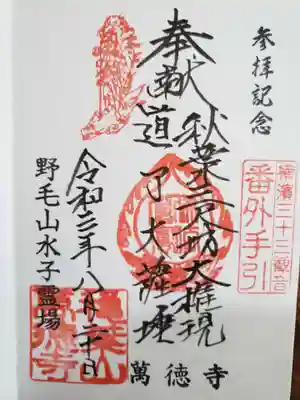 参拝記念
横濱三十三観音
番外手引
奉献
秋葉三尺坊大権現
道了大薩埵
令和 年八月二十日
野毛山水子霊場
萬徳寺